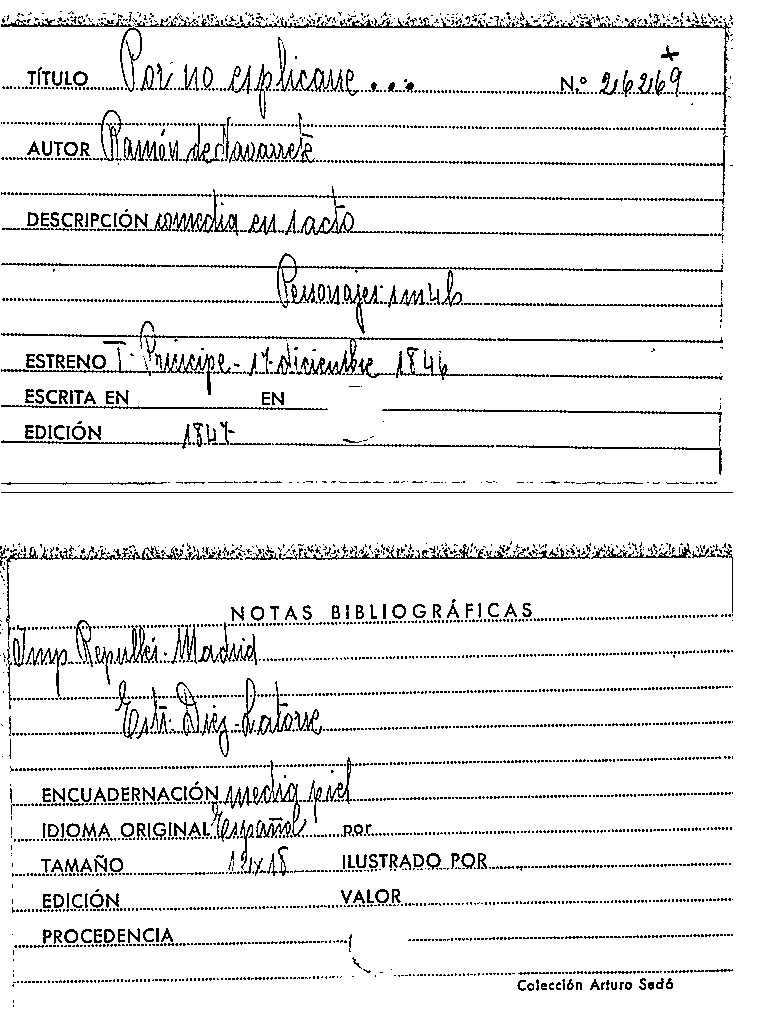 TÍTULO Por no esplicarse... N.º 26269
AUTOR Ramón de Navarrete
DESCRIPCIÓN comedia en 1 acto
Personajes: 1m4h
ESTRENO T. Príncipe - 17 diciembre 1846
ESCRITA EN EN
EDICIÓN 1847
NOTAS BIBLIOGRÁFICAS
Imp. Repullés. Madrid
Estr. Diez-Latorre
ENCUADERNACIÓN media piel
IDIOMA ORIGINAL Español por
TAMAÑO 12x18 ILUSTRADO POR
EDICIÓN VALOR
PROCEDENCIA
Colección Arturo Sedó